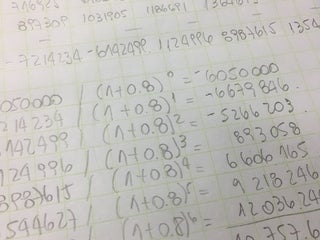 897309 1031905 1186691
-7214234 -6142499. 1124996 8987615 1354
050000 / (1+0.8)⁰ = -6050000
214234 / (1+0.8)¹ = -6679846.
142499 / (1+0.8)² = -5266203.
124996 / (1+0.8)³ = 893058
8987615 / (1+0.8)⁴ = 6606165
544627 / (1+0.8)⁵ = 9218246
/ (1+0.8)⁶ = 1203624